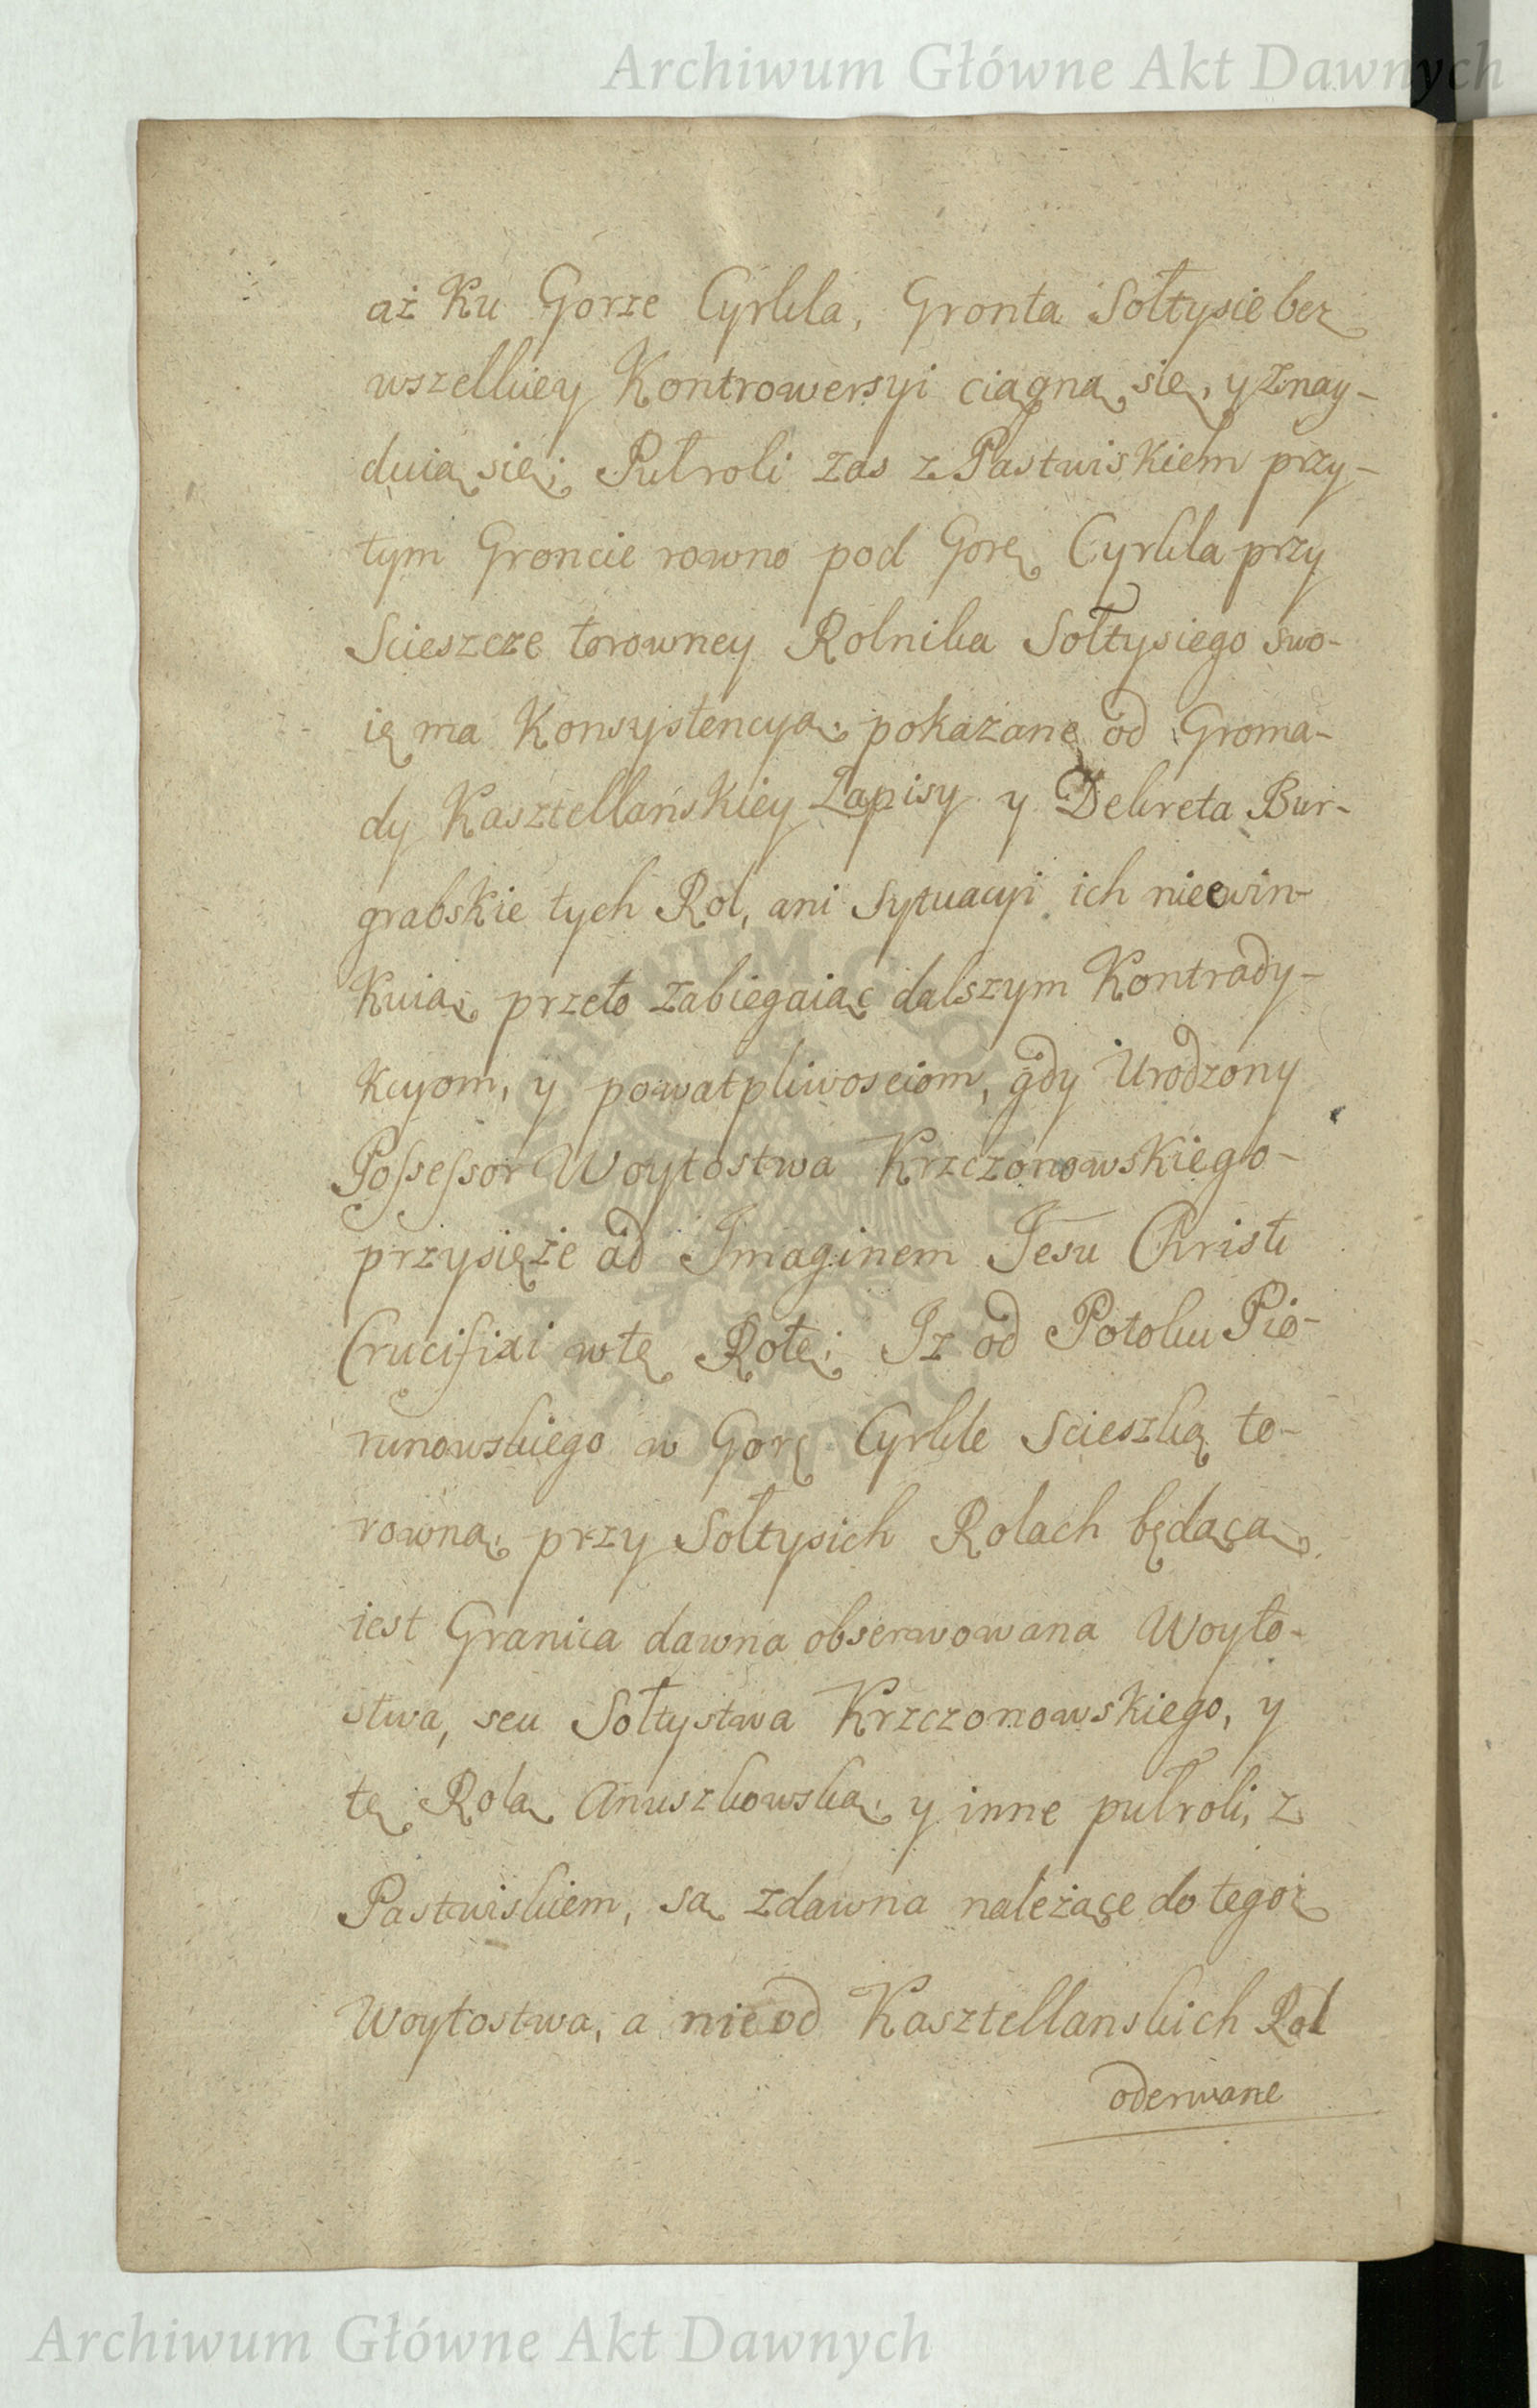 Archiwum Główne Akt Dawnych
aż Ku Gorze Cyrkla, Gronta Sołtysie bez
wszelkiey Kontrowersyi ciągną się, y znay-
duią się; Pułroli zas z Pastwiskiem przy-
tym Groncie rowno pod Gorę Cyrkla przy
Scieszcze torowney Rolnika Sołtysiego swo-
ię ma Konsystencyą; pokazane od Groma-
dy Kasztellańskiey Zapisy y Dekreta Bur-
grabskie tych Rol, ani Sytuacyi ich niewin-
kuią; przeto zabiegaiąc dalszym Kontrady-
kcyom, y powątpliwosciom, gdy Urodzony
Possessor Woytostwa Krzczonowskiego-
przysięże ad Imaginem Jesu Christi
Crucifixi w tę Rotę; Iż od Potoku Pio-
runowskiego w Gorę Cyrkle Scieszką to-
rowną; przy Sołtysich Rolach będącą
iest Granica dawna obserwowana Woyto-
stwa, seu Sołtystwa Krzczonowskiego, y
tę Rolą Anuszkowską, y inne pułroli, z
Pastwiskiem, są zdawna należące do tegoż
Woytostwa, a nie od Kasztellanskich Rol
oderwane
Archiwum Główne Akt Dawnych